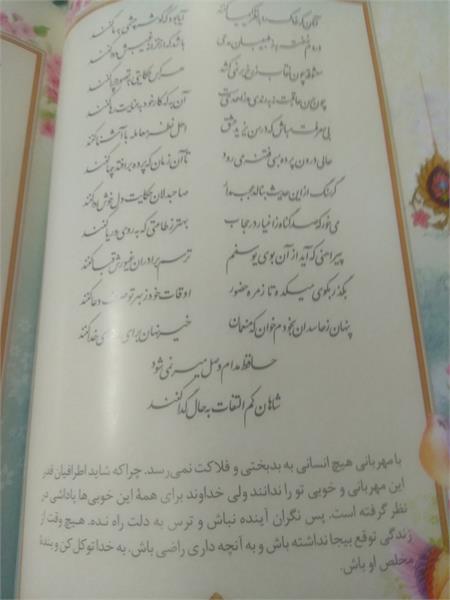 آنان که خاک را به نظر کیمیا کنند آیا بود که گوشه چشمی به ما کنند
دردم نهفته به ز طبیبان مدعی باشد که از خزانه غیبش دوا کنند
معشوقه چون نقاب ز رخ بر نمی کشد هر کس حکایتی به تصور چرا کنند
چون حسن عاقبت نه به رندی و زاهدیست آن به که کار خود به عنایت رها کنند
بی معرفت مباش که در من یزید عشق اهل نظر معامله با آشنا کنند
حالی درون پرده بسی فتنه می رود تا آن زمان که پرده برافتد چها کنند
گر سنگ از این حدیث بنالد عجب مدار صاحبدلان حکایت دل خوش ادا کنند
می خور که صد گناه ز اغیار در حجاب بهتر ز طاعتی که به روی و ریا کنند
پیراهنی که آید از آن بوی یوسفم ترسم برادران غیورش قبا کنند
بگذر بکوی میکده تا زمره حضور اوقات خود ز بهر تو صرف دعا کنند
پنهان ز حاسدان بخودم خوان که منعمان خیر نهان برای رضای خدا کنند
حافظ مدام وصل میسر نمی شود
شاهان کم التفات به حال گدا کنند
با مهربانی هیچ انسانی به بدبختی و فلاکت نمی رسد. چرا که شاید اطرافیان قدر
این مهربانی و خوبی تو را ندانند ولی خداوند برای همهٔ این خوبی‌ها پاداشی در
نظر گرفته است. پس نگران آینده نباش و ترس به دلت راه نده. هیچ وقت از
زندگی توقع بیجا نداشته باش و به آنچه داری راضی باش. به خدا توکل کن و بندهٔ
مخلص او باش.